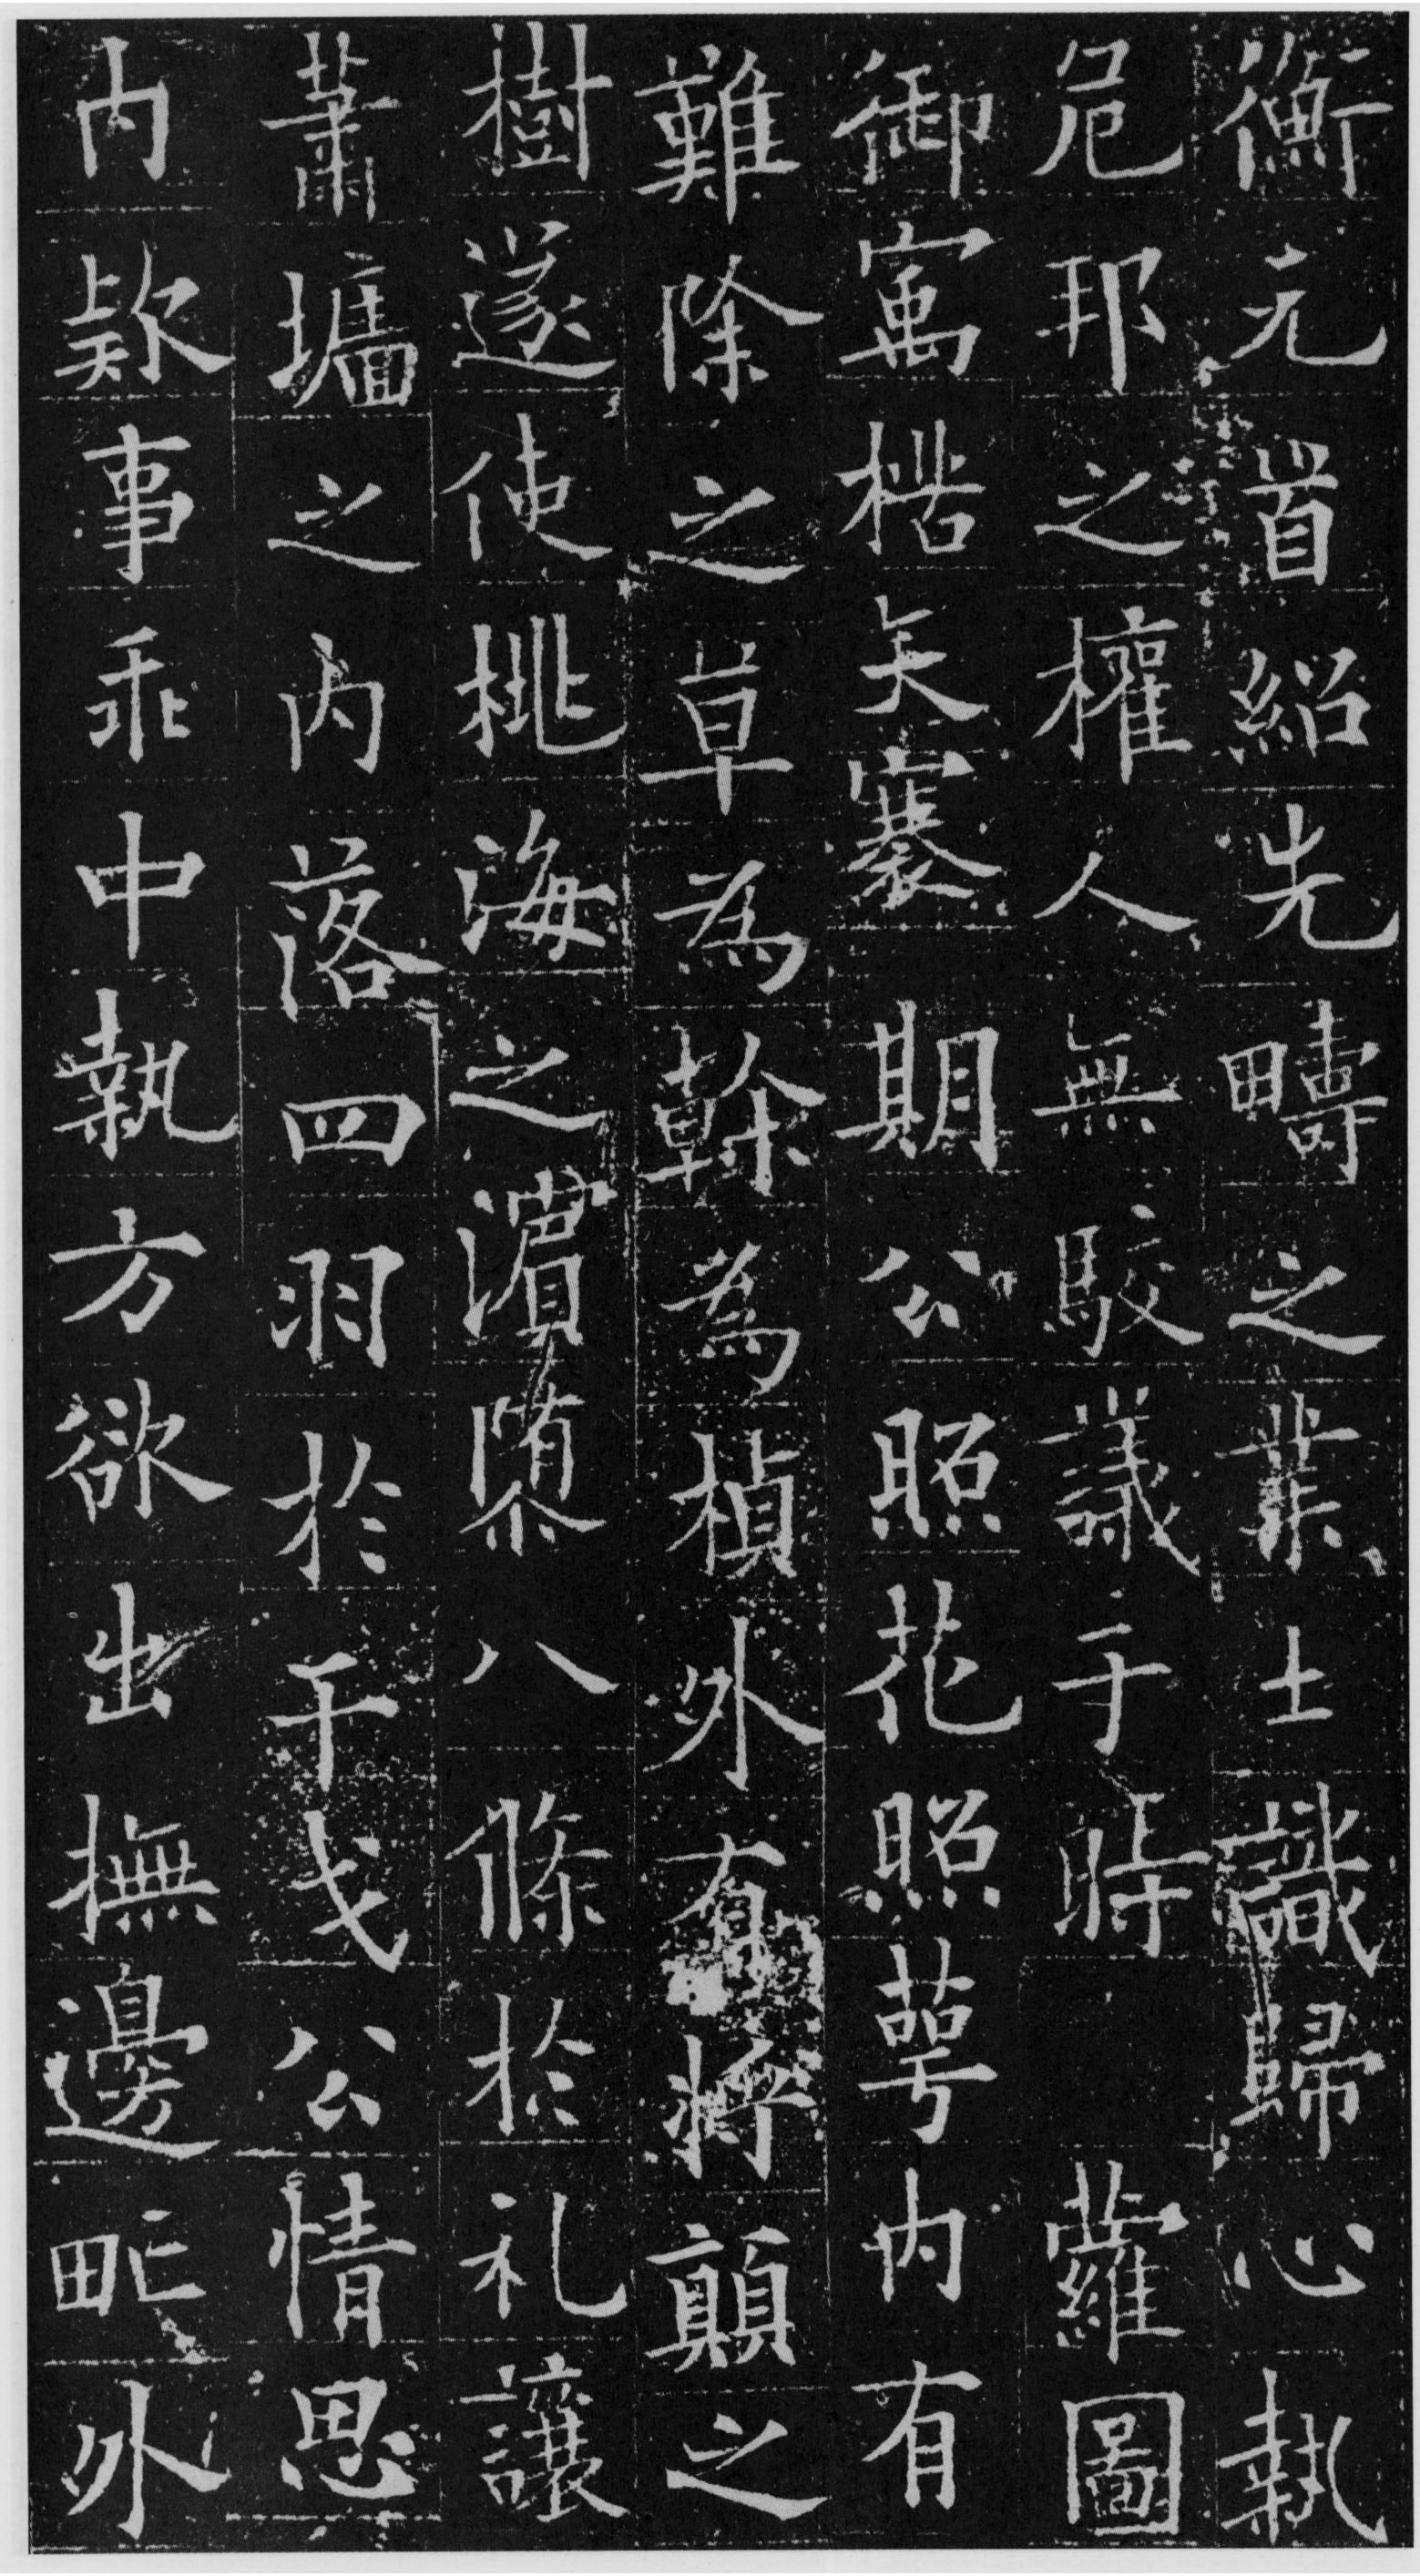 衡元首紹先疇之業士識歸心執
危邦之權人無駮議于時蘿圖
御寓楛矢褰期公照花照萼內有
難除之草為榦為楨外有將顛之
樹遂使桃海之濆隳八條於礼讓
蕭墻之內落四羽於干戈公情思
內款事乖中執方欲出撫邊甿外